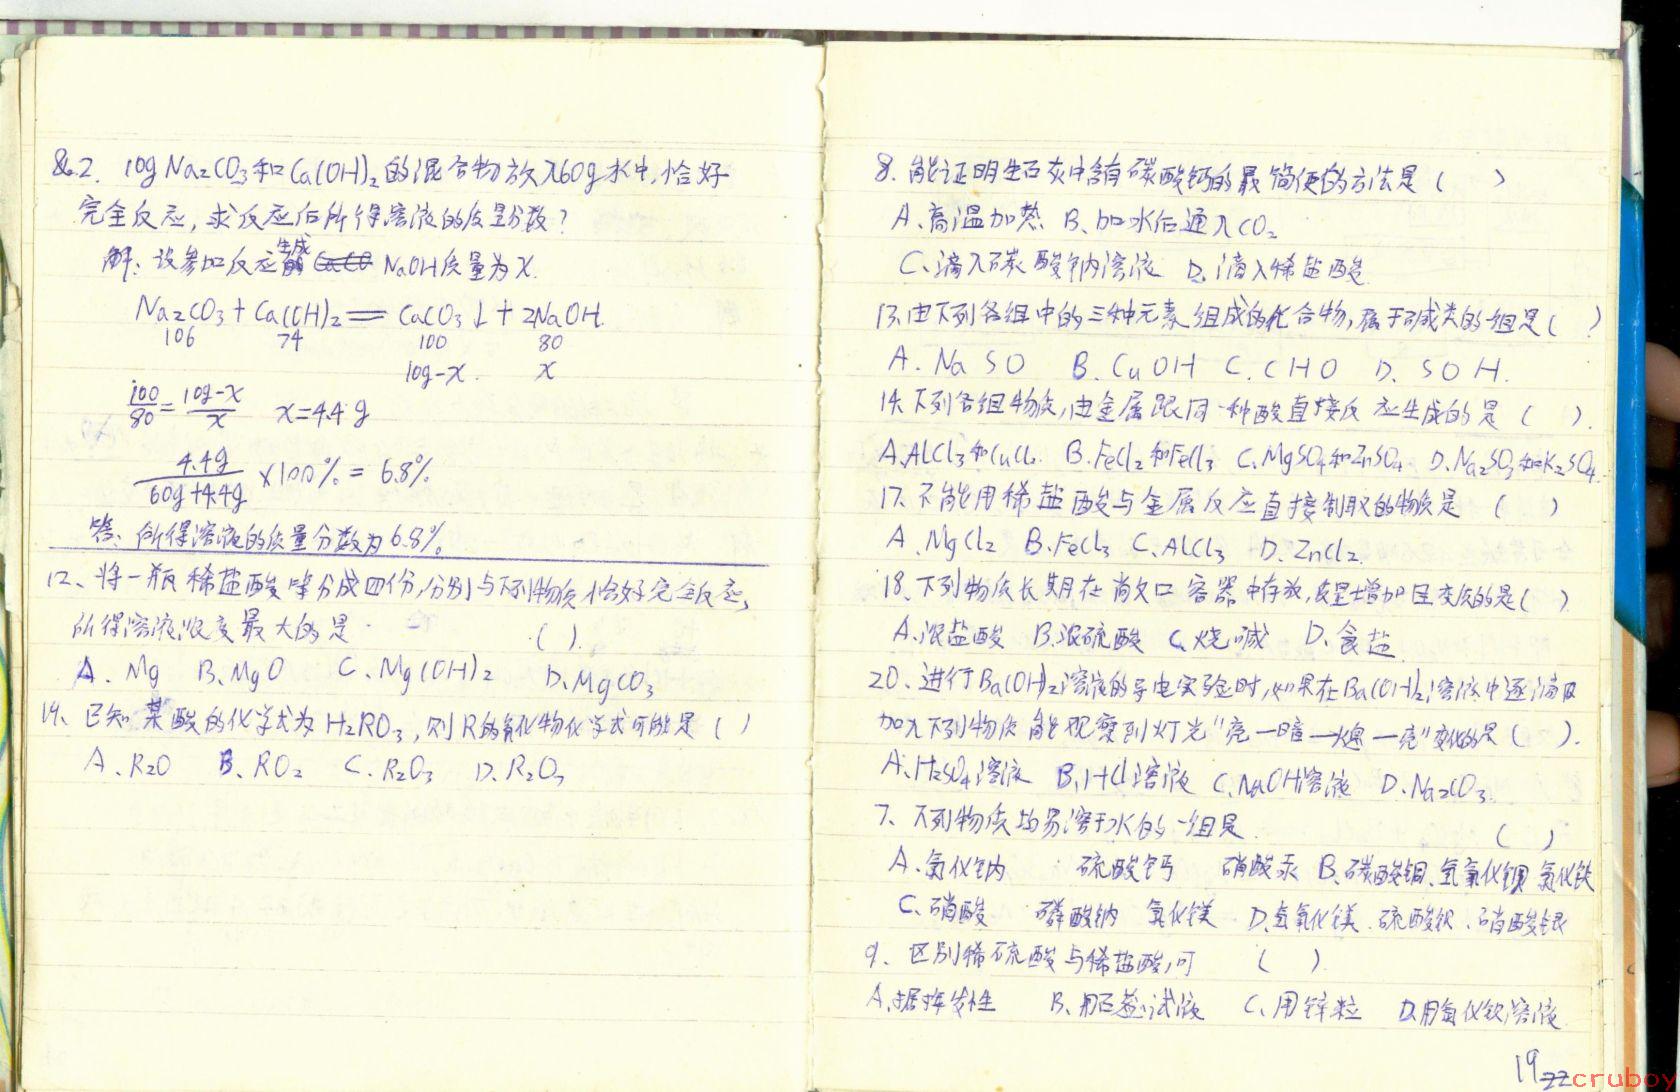 &.2. 10g Na₂CO₃和Ca(OH)₂的混合物放入60g水中,恰好
完全反应,求反应后所得溶液的质量分数?
解:设参加反应生成 NaOH质量为x.
Na₂CO₃+Ca(OH)₂══CaCO₃↓+2NaOH.
106 74 100 80
10g-x. x
100/80=10g-x/x x=4.4g
4.4g/60g+4.4g×100%=6.8%
答:所得溶液的质量分数为6.8%
12、将一瓶稀盐酸等分成四份,分别与下列物质恰好完全反应,
所得溶液浓度最大的是 ( ).
A. Mg B.MgO C.Mg(OH)₂ D.MgCO₃
19、已知某酸的化学式为H₂RO₃,则R的氧化物化学式可能是( )
A.R₂O B、RO₂ C.R₂O₃ D.R₂O₃
8.能证明生石灰中含有碳酸钙的最简便的方法是( )
A、高温加热 B、加水后通入CO₂
C、滴入碳酸钠溶液 D、滴入稀盐酸
13.由下列各组中的三种元素组成的化合物,属于碱类的一组是( )
A. Na S O B.Cu O H C.C H O D.S O H.
14.下列各组物质,由金属跟同一种酸直接反应生成的是( ).
A.AlCl₃和CuCl₂ B.FeCl₂和FeCl₃ C.MgSO₄和ZnSO₄ D.Na₂SO₃和K₂SO₄.
17.不能用稀盐酸与金属反应直接制取的物质是( )
A.MgCl₂ B.FeCl₃ C.AlCl₃ D.ZnCl₂
18.下列物质长期在敞口容器中存放,质量增加且变质的是( )
A.浓盐酸 B.浓硫酸 C.烧碱 D.食盐
20、进行Ba(OH)₂溶液的导电实验时,如果在Ba(OH)₂溶液中逐滴
加入下列物质能观察到灯光“亮—暗—熄—亮”变化的是( ).
A.H₂SO₄溶液 B.HCl溶液 C.NaOH溶液 D.Na₂CO₃.
7、下列物质均易溶于水的一组是 ( )
A.氯化钠 硫酸钙 硝酸汞 B.碳酸铜、氢氧化钡 氯化铁
C、硝酸 磷酸钠 氯化镁 D.氢氧化镁.硫酸钡.硝酸银
9、区别稀硫酸与稀盐酸,可 ( )
A.据挥发性 B、用石蕊试液 C、用锌粒 D.用氯化钡溶液
19
zzcruboy